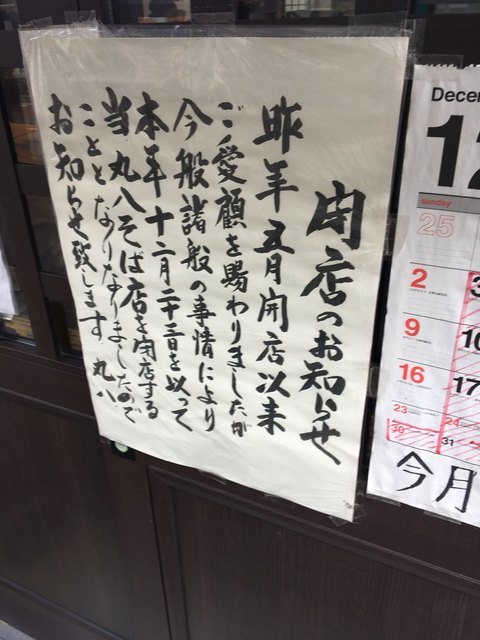 閉店のお知らせ
昨年五月開店以来
ご愛顧を賜わりましたが
今般諸般の事情により
本年十二月二十三日を以って
当丸八そば店を閉店する
こととなりなりましたので
お知らせ致します 丸八
Decem
12
sunday
25
2 3
9 10
16 17
23 24
30 31
今月